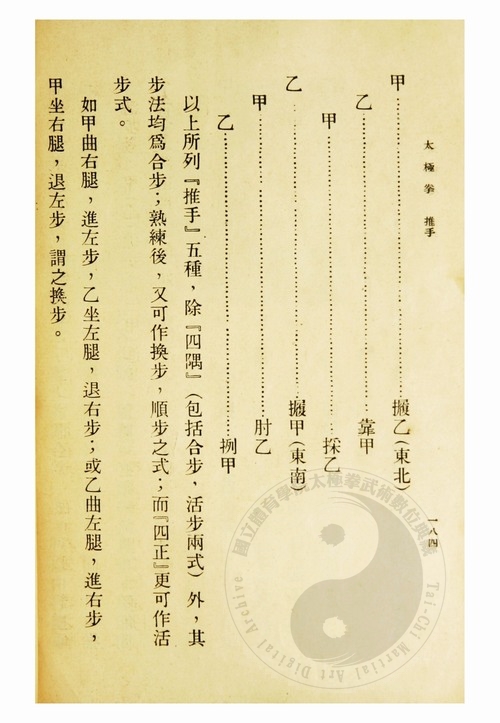 太極拳 推手
一八四
甲……………攦乙(東北)
乙……………靠甲
甲……………採乙
乙……………攦甲(東南)
甲……………肘乙
乙……………挒甲
以上所列『推手』五種，除『四隅』(包括合步，活步兩式)外，其
步法均爲合步；熟練後，又可作換步，順步之式；而『四正』更可作活
步式。
如甲曲右腿，進左步，乙坐左腿，退右步；或乙曲左腿，進右步，
甲坐右腿，退左步，謂之換步。
國立體育學院太極拳武術數位典藏
Tai-Chi Martial Art Digital Archive